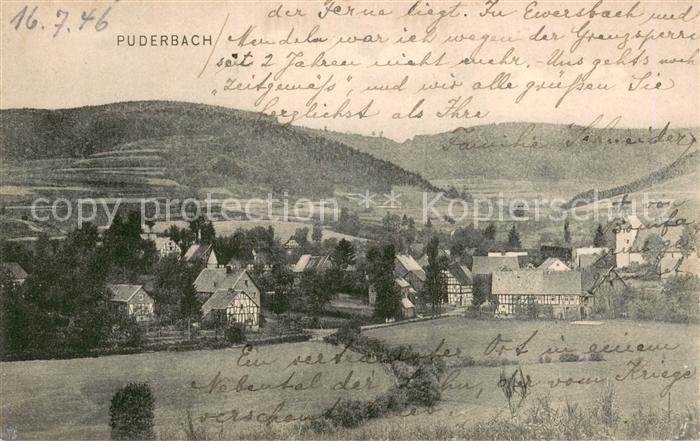 16.7.46
PUDERBACH
der Ferne liegt. In Ewersbach und
Mandeln war ich wegen der Grenzsperre
seit 2 Jahren nicht mehr. - Uns gehts noch
„zeitgemäß“, und wir alle grüßen Sie
herzlichst als Ihre
Familie Schneider.
copyright **picclick** copyright
Ein verträumter Ort in einem
Nebental der Lahn, der vom Kriege
verschont blieb.